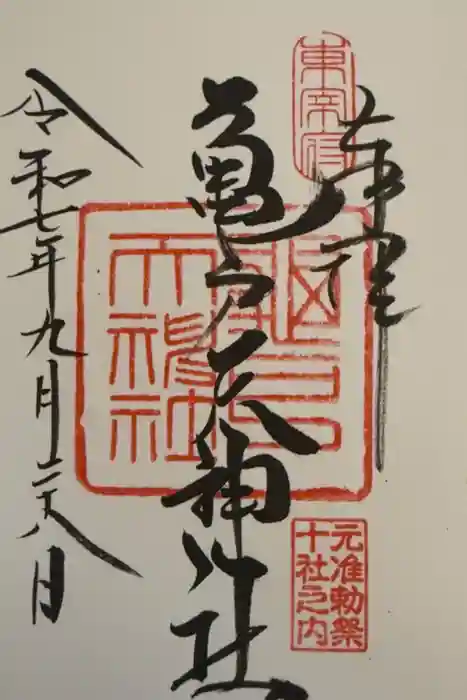 奉拝
東宰府
亀戸天神社
亀戸天神社
元准勅祭
十社之内
令和七年九月二十八日